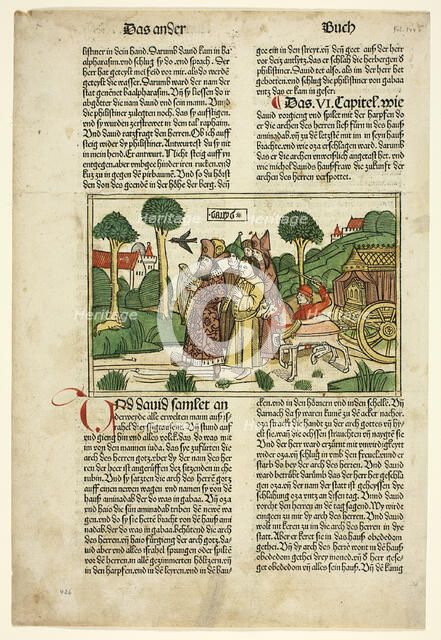 Das ander
Buch
listiner in dein hand. Darumb dauid kam in ba-
alpharasim. und schlug sy do. und sprach. Der
herr hat geteylt mei feind vor mir. als do werdē
geteylt die wasser. Darumb ward der nam der
stat genēnet baalpharasim. Vn sy liessen do ir
abgötter die nam dauid und sein mann. Vn
die philistiner zulegten noch. das sy auffstigen.
und sy wurden zerströwet in dem tall raphaim.
Vnd dauid ratzfragt den herren. Ob ich auff
steig wider dy philistiner. Antwurtest du sy
in mein hend. Er antwurt. Nicht steig auff in
entgegen. aber umbge hinder iren rucken. und
kuz zu in gegen dē pirbaumē. Vn so du hörst
den don des geenden in der höhe der berg. den
gee ein in den streyt. vn den geet auß der herr
vor deim antlytz. das er schlah die herbergen dē
philistiner. Dauid tet also. als im der herr het
gebotten. und schlug die philistiner von gabaa
vntz. das er kam in geser.
Das .VI. Capitel. wie
dauid vorgieng und spilet mit der harpfen do
er die archen des herren ließ füren in des hauß
aminadab. vn zu dē letzstē mit im in seyn hauß
brachte. und wie oza erschlagen ward. darumb
das er die archen unwirdlich angetastet het. und
wie michol dauids haußfraw die zukunft der
archen des herren verspottet.
dauid
heritage-images
heritage
images
Vnd dauid samlet an
derweyde alle erwelten mann auß is-
rahel dreyssigtausent. Vn stund auff
und gieng hin und alles volck. das do was mit
im von den mannen iuda. das sy zufürten die
arch des herren gotz. über dy der nam des her
ren der heer ist angerüffen des sitzenden in che
rubin. Vnd sy satzten die arch des herrē gotz
auff einen newen wagen und namen sy von dē
hauß aminadab der do was in gabaa. Vn oza
und haio die sün aminadab triben dē newē wa
gen. und do sy sie hettē bracht von dē hauß ami
nadab. der do was in gabaa. behütend die arch
des herren. vn haio fürgieng der arch gotz. da
uid aber und alles israhel sprungen oder spiltē
vor dē herren. in alle gezimmerten höltzern. vn
in den harpfen. und in dē leyren. und in dē bau-
cken. und in den hörnern und in dē schellē. Vn
Darnach da sy waren kumē zu dē acker nachor.
da strackt oza die hand zu der arch gottes vn hyl
et sie. wan die ochssen strauchten vn naygtē sie
Vnd der herr ward erzürnt mit unwirdigkeit
wider oza. vn schlug in umb den freuel. und er
starb do bey der arch des herren. Vnd dauid
ward betrübt darumb das der herr het geschla
gen oza. vn der nam der statt ist geheyssen die
schlahung oza vntz an disen tag. Vnnd dauid
vorcht den herren an dē tag sagend. Wy wirt
eingeen zu mir dy arch des herren. Vn dauid
wolt nit keren zu im die arch des herren in dye
statt. Aber er kerte sie in das hauß obededom
gethei. Vn dy arch des herrē wont in dē hauß
obededom gethei drey moned. vn d herr gese-
get obededom vn alles sein hauß. Vn dē künig
426